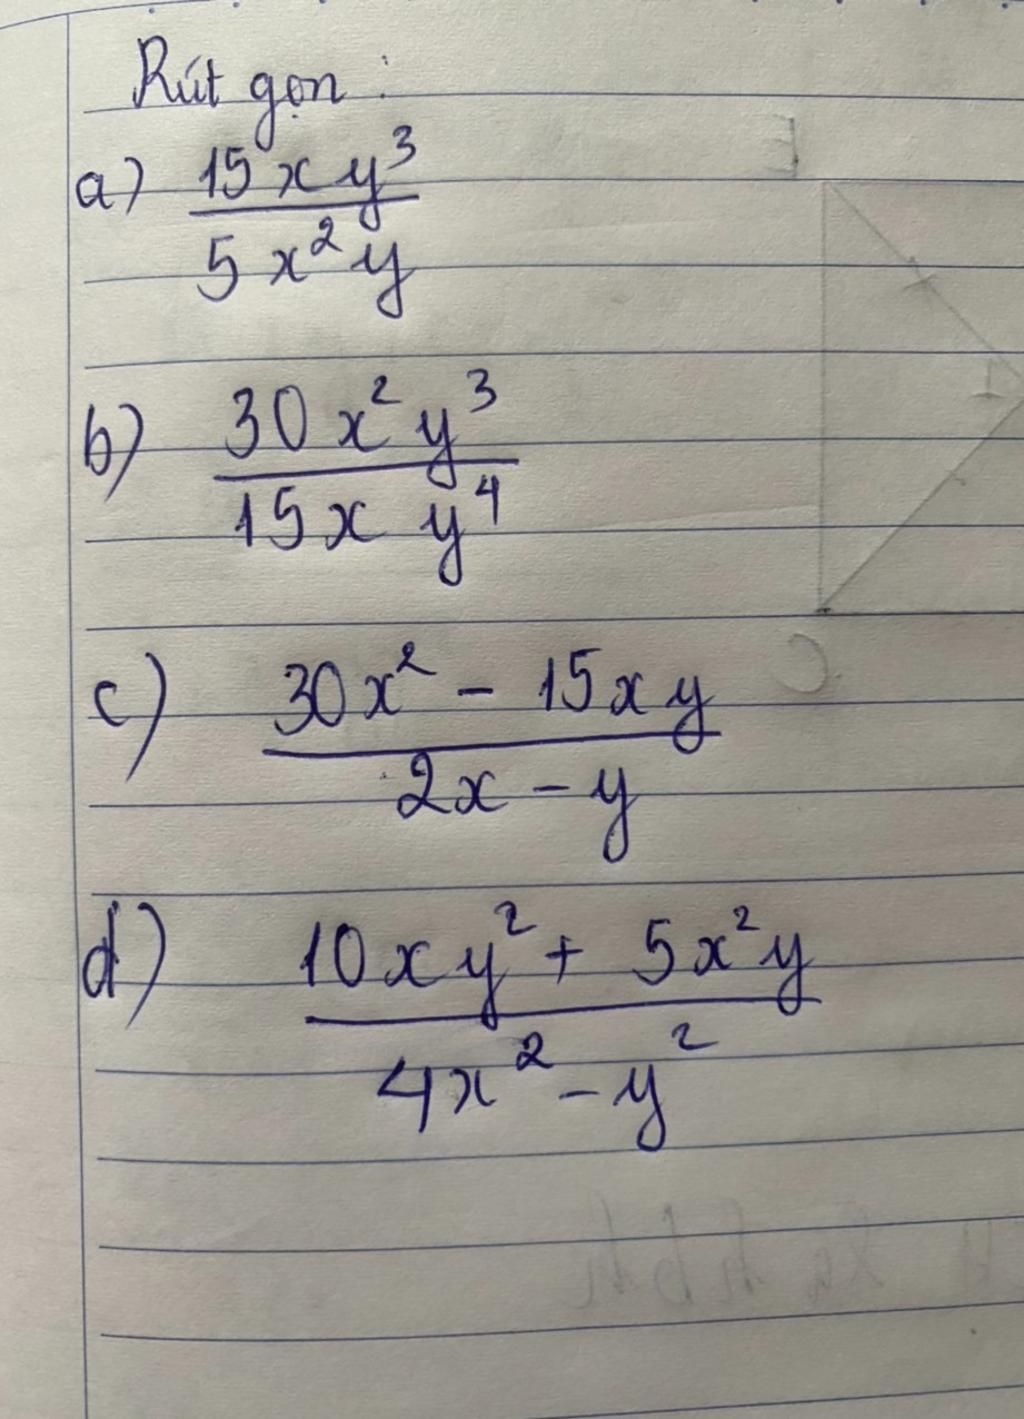 Rút gọn :
a) 15xy³ / 5x²y
b) 30x²y³ / 15x y⁴
c) 30x² - 15xy / 2x - y
d) 10xy² + 5x²y / 4x² - y²
E
C